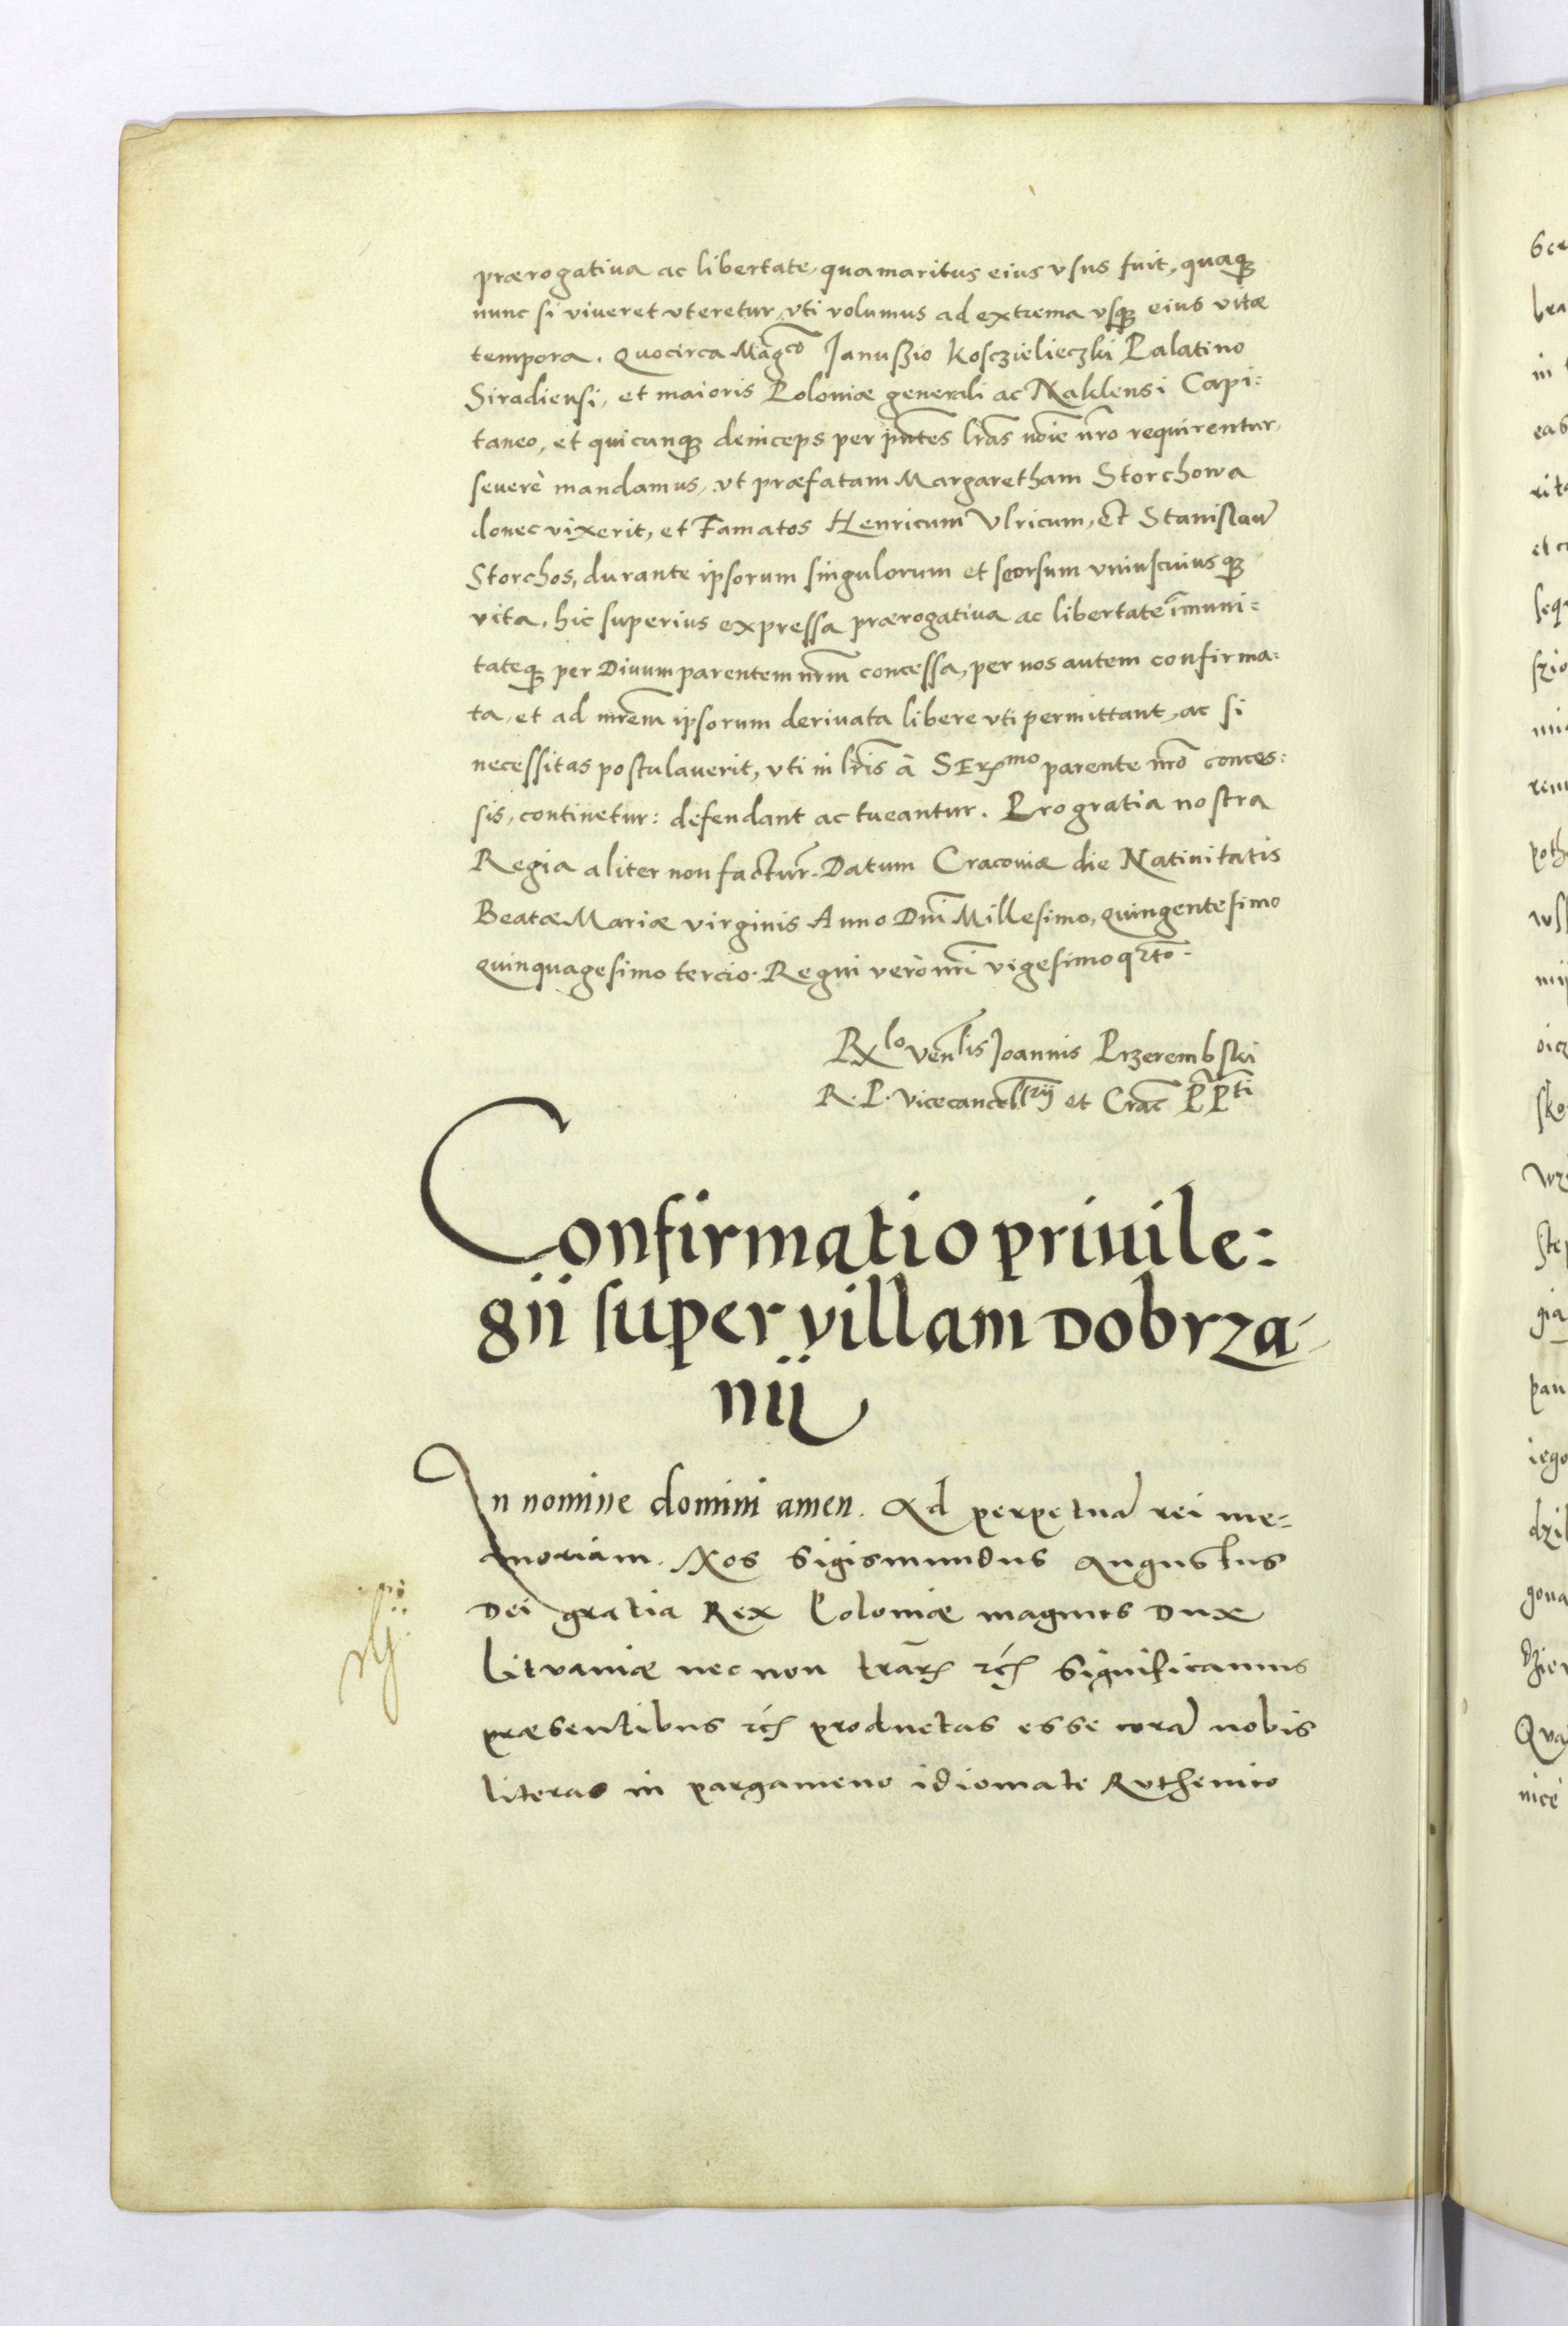 prærogatiua ac libertate, qua maritus eius vsus fuit, quaqꝫ
nunc si viueret vteretur, vti volumus ad extrema vsqꝫ eius vitæ
tempora. Quocirca Mag̃co Janußio Kosczielieczki Palatino
Siradiensi, et maioris Poloniæ generali ac Naklensi Capi=
taneo, et quicunqꝫ deinceps per pñtes lr̃as noĩe nr̃o requirentur,
seuerè mandamus, vt præfatam Margaretham Storchowa
donec vixerit, et Famatos Henricum Vlricum, et Stanislaũ
Storchos, durante ipsorum singulorum et seorsum vniuscuiusqꝫ
vita, hic superius expressa prærogatiua ac libertate im̃uni=
tateqꝫ per Diuum parentem nr̃m concessa, per nos autem confirma=
ta, et ad mr̃em ipsorum deriuata libere vti permittant, ac si
necessitas postulauerit, vti in lr̃is à SEꝶmo parente nr̃o conces=
sis, continetur: defendant ac tueantur. Pro gratia nostra
Regia aliter non factur̃. Datum Cracouiæ die Natiuitatis
Beatæ Mariæ virginis Anno Dñi Millesimo, quingentesimo
quinquagesimo tercio. Regni verò nr̃i vigesimo qr̃to.
Rxlo Venlis Joannis Przerembski
R. P. Vicecancellrij et Crac̃ P̃P̃ti
Confirmatio priuile=
gii super villam Dobrza=
nii
In nomine domini amen. Ad perpetuã rei me=
moriam. Nos Sigismundus Augustus
Dei gratia Rex Poloniæ magnus Dux
Lituaniæ nec non trãrꝶ ꝛcꝶ Significamus
præsentibus ꝛcꝶ productas esse corã nobis
literas in pargameno idiomate Ruthenico